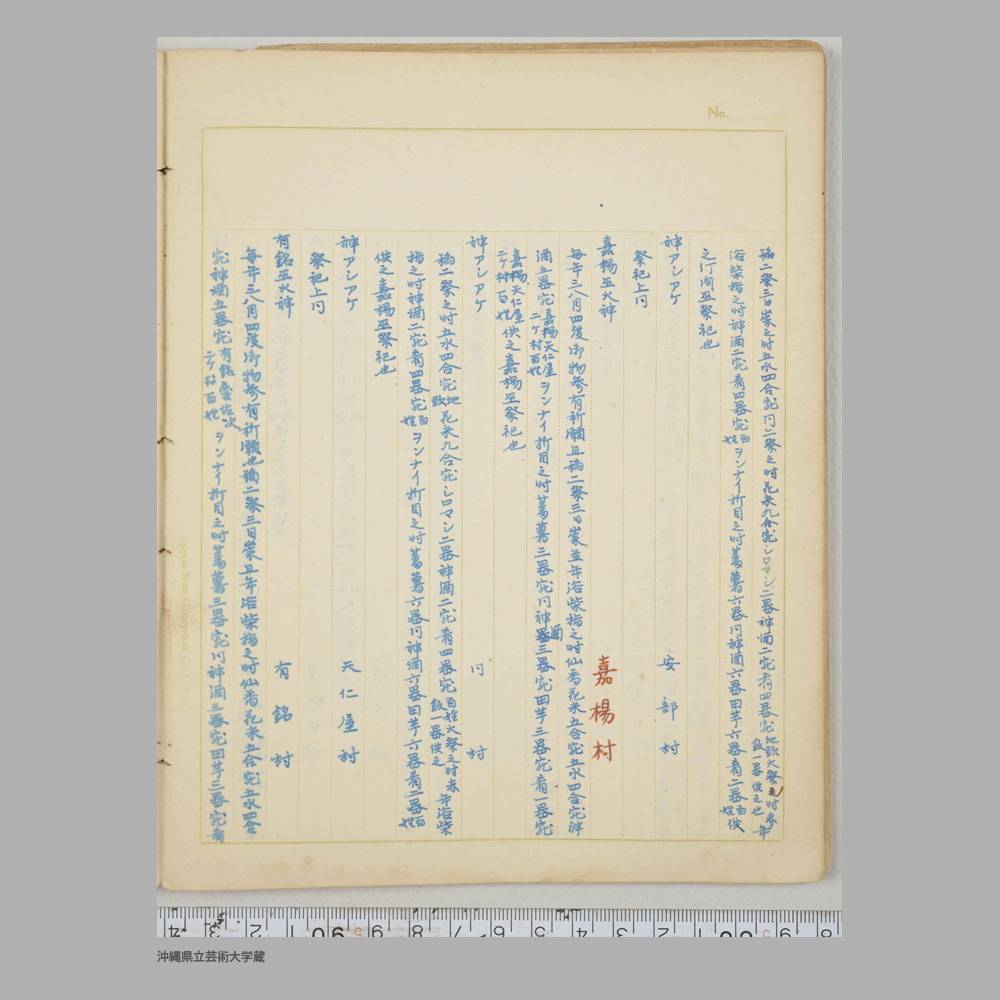 No.
稲二祭三日崇之時五水四合宛同二祭之時花米九合宛シロマシ二器神酒二宛肴四器宛地頭大祭之時赤飯一器供之也年
浴柴指之時神酒二宛肴四器宛百姓ヲンナイ折目之時蕃薯六器同神酒六器田芋六器肴二器百姓供
之何向巫祭祀也
神アシアケ 安部村
祭祀上同
嘉楊村
嘉楊巫火神
毎年三八月四度御物参有祈願且稲二祭三日崇並年浴柴指之時仙香花米五合宛五水四合宛神
酒五器宛嘉楊天仁屋二ヶ村百姓ヲンナイ折目之時蕃薯三器宛同神酒三器宛田芋三器宛肴一器宛
嘉楊天仁屋二ヶ村百姓供之嘉楊巫祭祀也
神アシアケ 同村
稲二祭之時五水四合宛地頭花米九合宛シロマシ二器神酒二宛肴四器宛百姓大祭之時赤飯一器供之年浴柴
指之時神酒二宛肴四器宛百姓ヲンナイ折目之時蕃薯六器同神酒六器田芋六器肴二器百姓
供之嘉楊巫祭祀也
神アシアケ 天仁屋村
祭祀上同
有銘巫火神 有銘村
毎年三八月四度御物参有祈願也稲二祭三日崇且年浴柴指之時仙香花米五合宛五水四合
宛神酒五器宛有銘慶佐次二ヶ村百姓ヲンナイ折目之時蕃薯三器宛同神酒三器宛田芋三器宛肴
沖縄県立芸術大学蔵